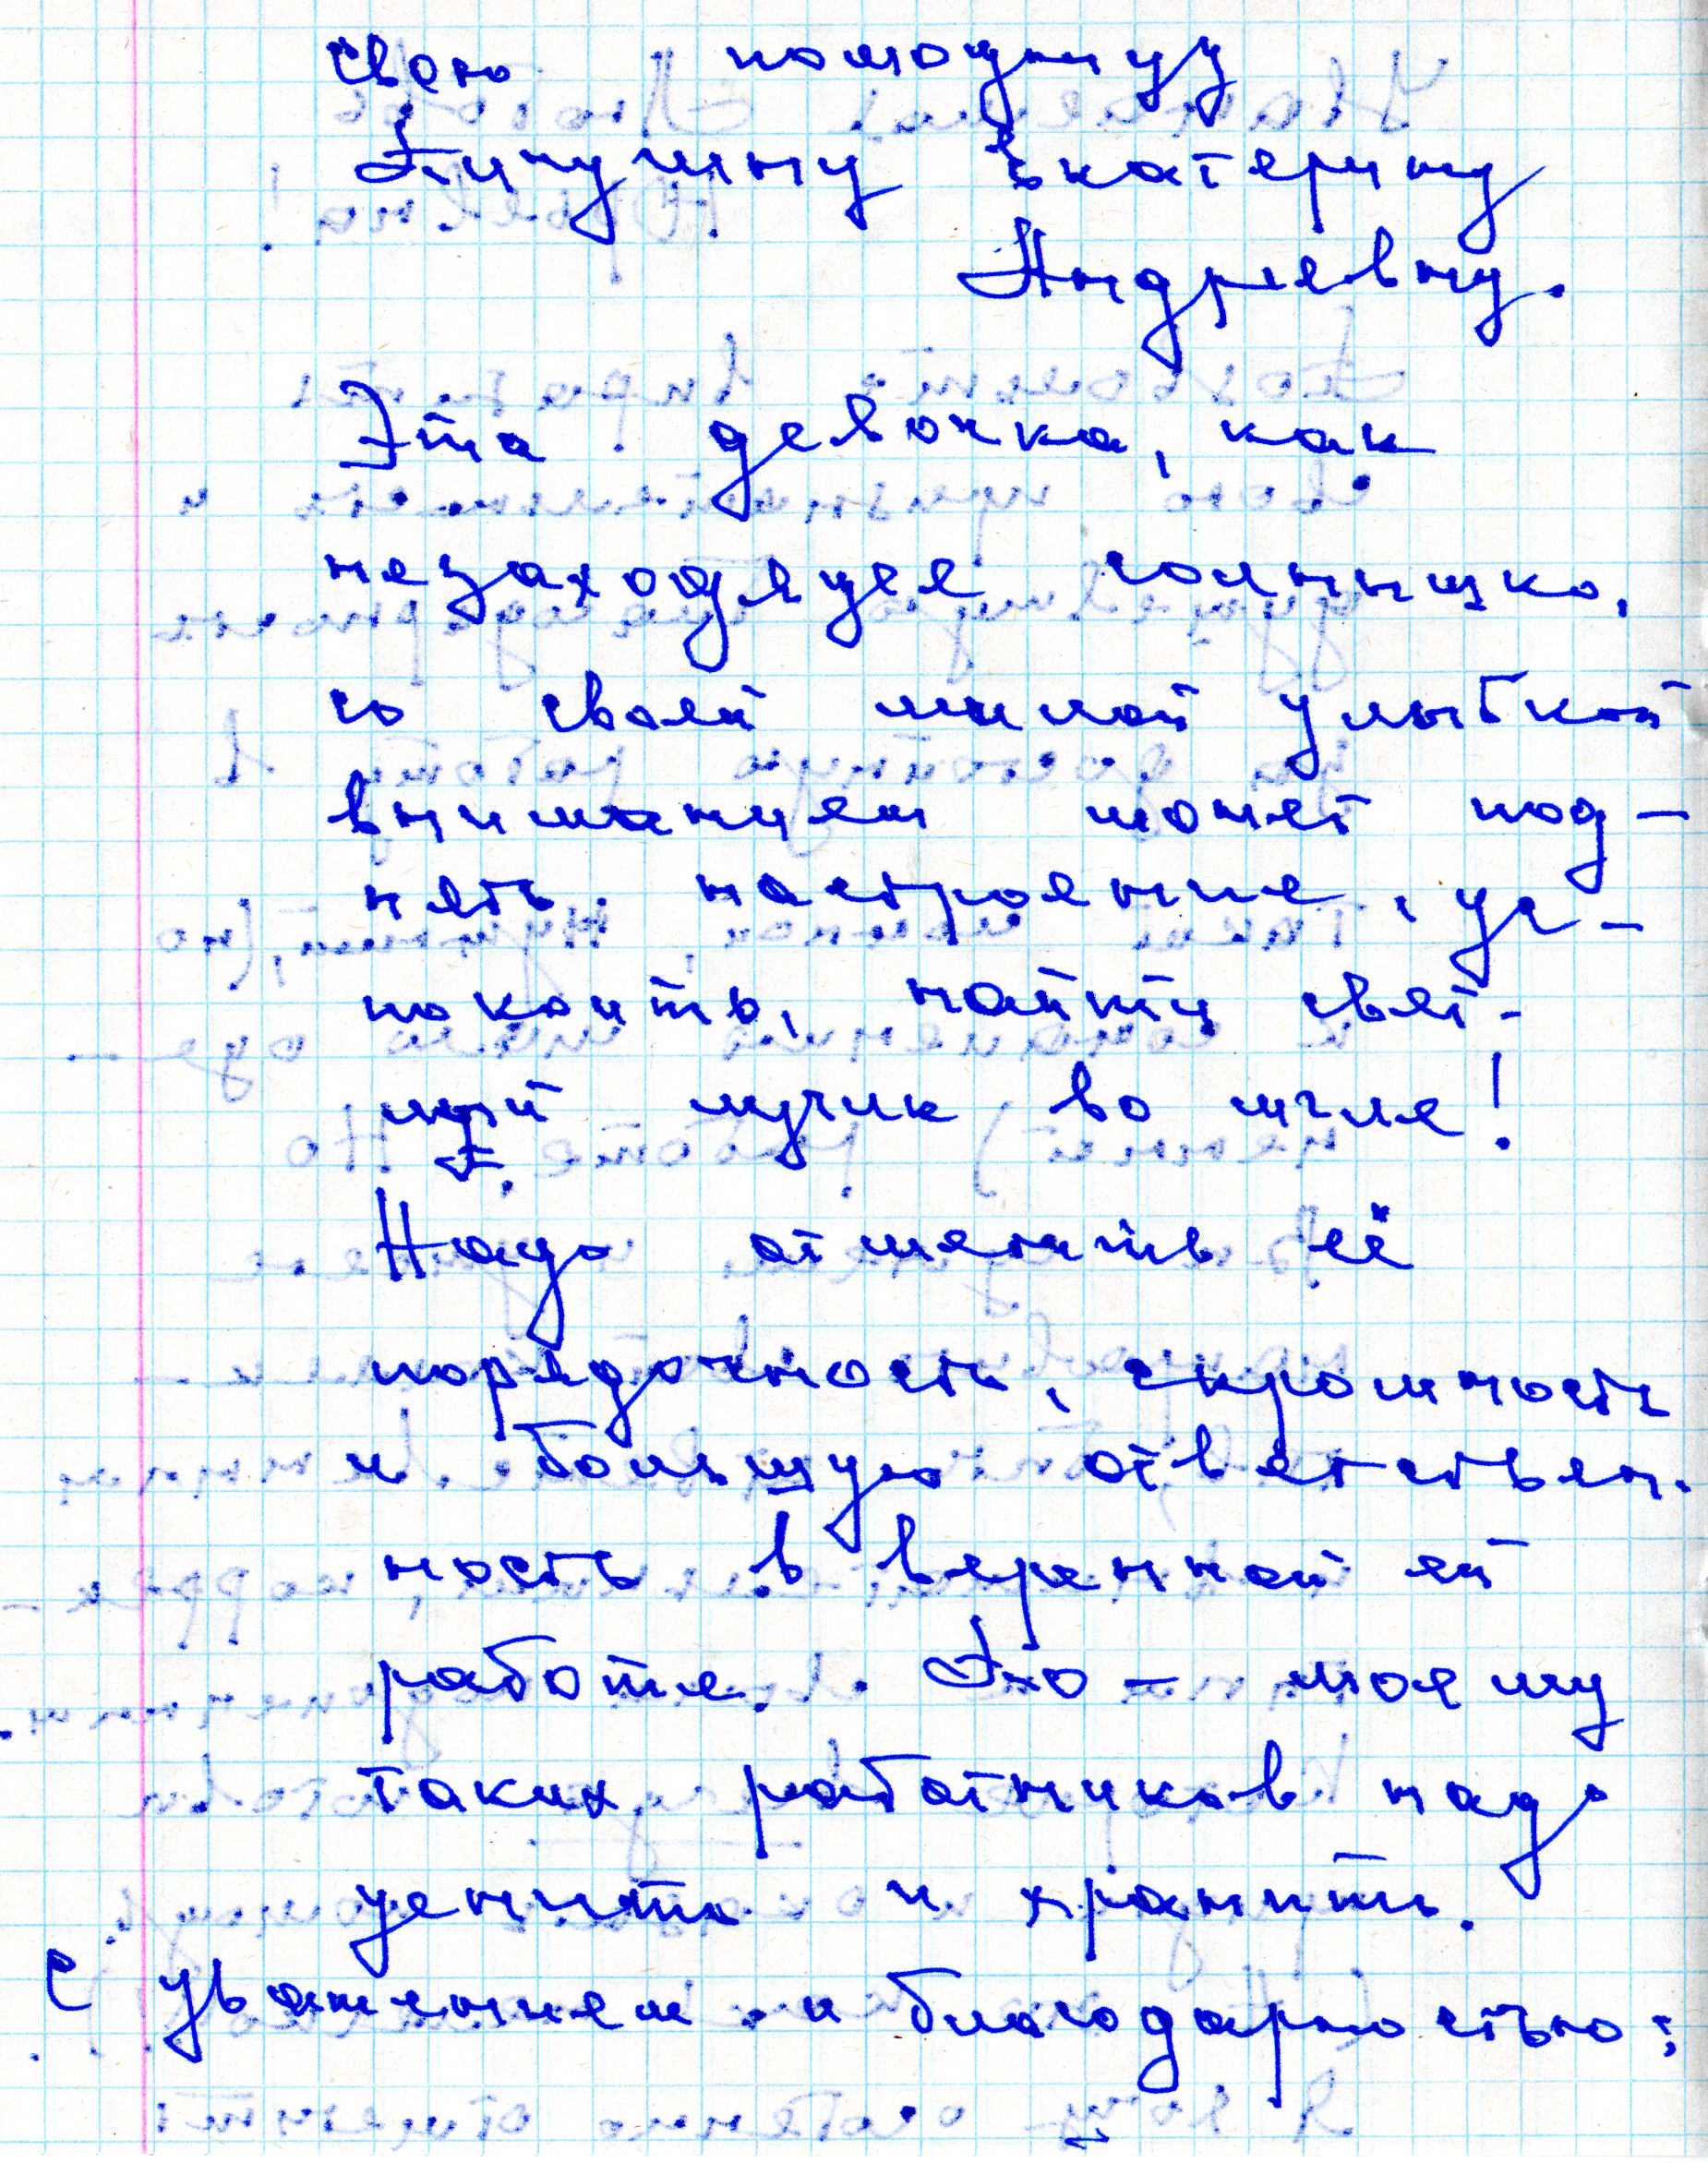 свою помощницу
Пичугину Екатерину
Андреевну.
Эта девочка, как
незаходящее солнышко,
со своей милой улыбкой
вниманием может под-
нять настроение, ус-
покоить, найти свет-
лый лучик во мгле!
Надо отметить её
порядочность, скромность
и большую ответствен-
ность в веренной ей
работе. Это - моему
таких работников надо
ценить и хранить.
С уважением и благодарностью: